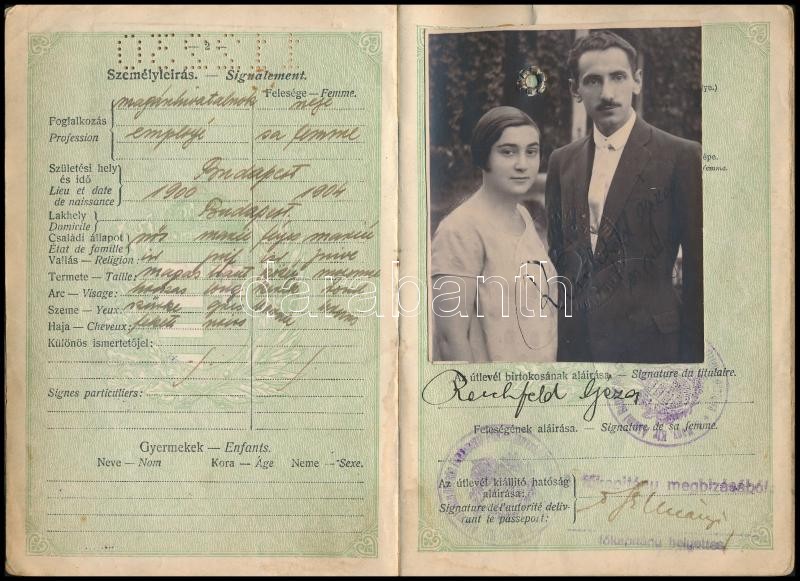 - 2 -
Személyleírás. — Signalement.
Felesége — Femme.
magánhivatalnok neje
Foglalkozás
Profession
employé sa femme
Születési hely
és idő
Lieu et date
de naissance
Budapest
1900 1904
Lakhely
Domicile
Budapest.
Családi állapot
État de famille
nős marié férjes mariée
Vallás — Religion: izr. juif izr. juive
Termete — Taille: magas haut
Arc — Visage: hosszas long
Szeme — Yeux: szürke gris barna bruns
Haja — Cheveux: fekete noirs
Különös ismertetőjel:
Signes particuliers:
Gyermekek — Enfants.
Neve — Nom Kora — Âge Neme — Sexe.
femme
darabanth
Az útlevél birtokosának aláírása. — Signature du titulaire.
Reichfeld Géza
Feleségének aláírása. — Signature de sa femme.
Az útlevél kiállító hatóság
aláírása:
Signature de l'autorité déliv-
rant le passeport:
főkapitány megbízásából:
főkapitány helyettes